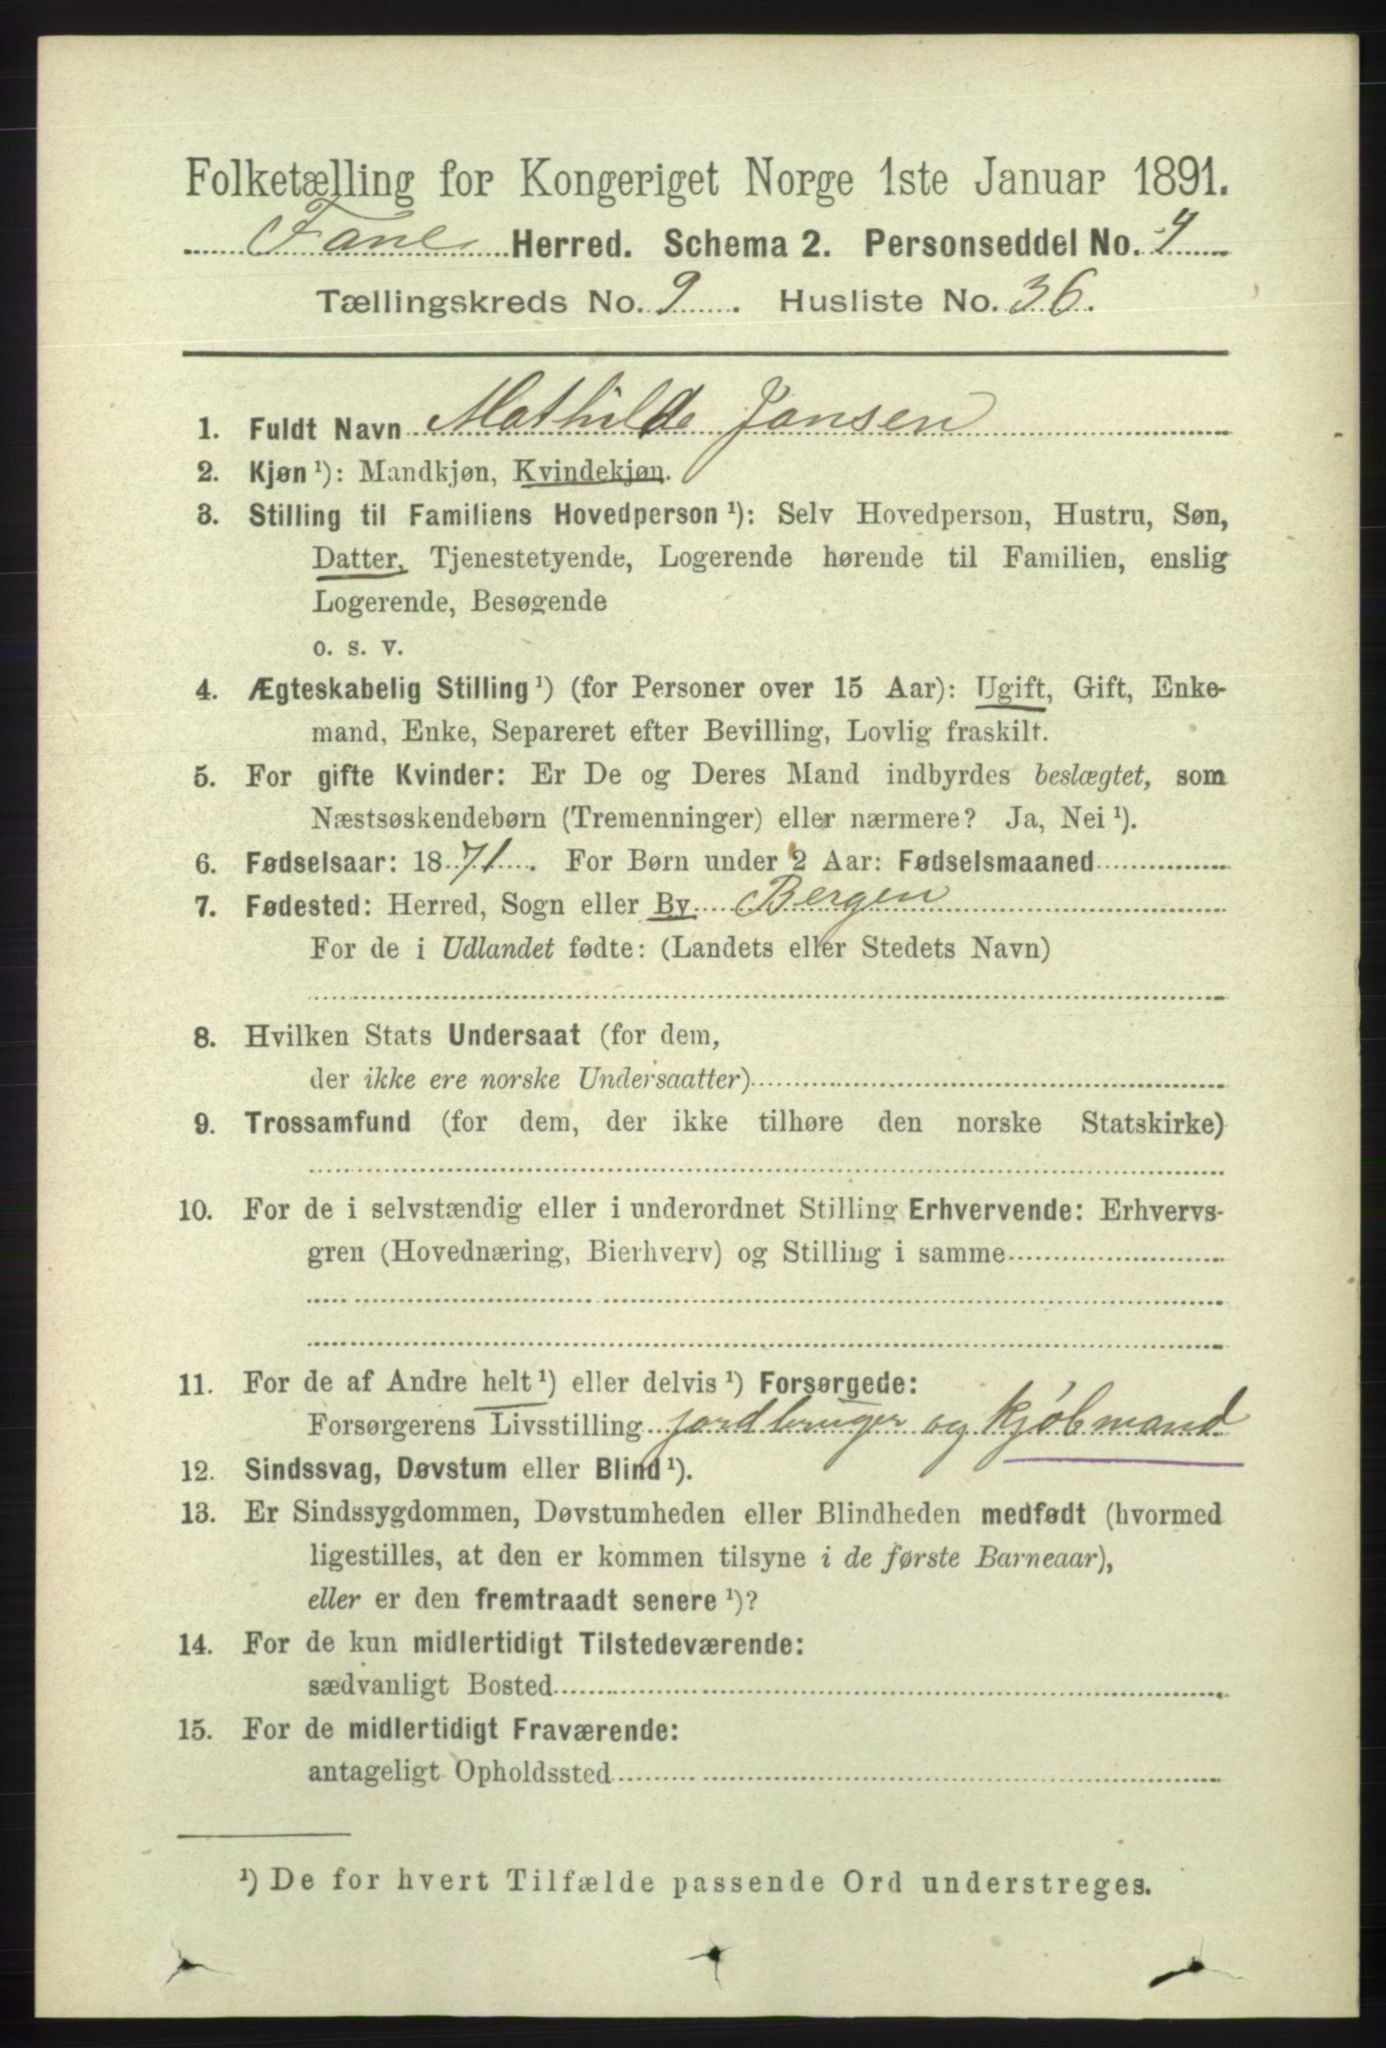 Folketælling for Kongeriget Norge 1ste Januar 1891.
Fane Herred. Schema 2. Personseddel No. 4
Tællingskreds No. 9. Husliste No. 36.
1. Fuldt Navn Mathilde Jansen
2. Kjøn ¹): Mandkjøn, Kvindekjøn.
3. Stilling til Familiens Hovedperson ¹): Selv Hovedperson, Hustru, Søn,
Datter, Tjenestetyende, Logerende hørende til Familien, enslig
Logerende, Besøgende
o. s. v.
4. Ægteskabelig Stilling ¹) (for Personer over 15 Aar): Ugift, Gift, Enke-
mand, Enke, Separeret efter Bevilling, Lovlig fraskilt.
5. For gifte Kvinder: Er De og Deres Mand indbyrdes beslægtet, som
Næstsøskendebørn (Tremenninger) eller nærmere? Ja, Nei ¹).
6. Fødselsaar: 1871. For Børn under 2 Aar: Fødselsmaaned
7. Fødested: Herred, Sogn eller By Bergen
For de i Udlandet fødte: (Landets eller Stedets Navn)
8. Hvilken Stats Undersaat (for dem,
der ikke ere norske Undersaatter)
9. Trossamfund (for dem, der ikke tilhøre den norske Statskirke)
10. For de i selvstændig eller i underordnet Stilling Erhvervende: Erhvervs-
gren (Hovednæring, Bierhverv) og Stilling i samme
11. For de af Andre helt ¹) eller delvis ¹) Forsørgede:
Forsørgerens Livsstilling jordbruger og kjøbmand
12. Sindssvag, Døvstum eller Blind ¹).
13. Er Sindssygdommen, Døvstumheden eller Blindheden medfødt (hvormed
ligestilles, at den er kommen tilsyne i de første Barneaar),
eller er den fremtraadt senere ¹)?
14. For de kun midlertidigt Tilstedeværende:
sædvanligt Bosted
15. For de midlertidigt Fraværende:
antageligt Opholdssted
¹) De for hvert Tilfælde passende Ord understreges.